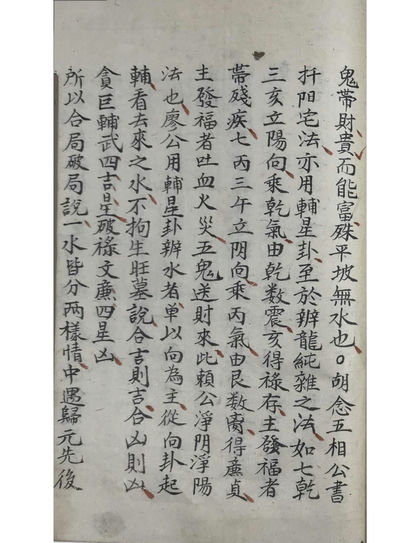 鬼帶財貴而能富殊平坡無水也。胡念五相公書
扦阳宅法亦用輔星卦至於辨龍純雜之法如七乾
三亥立陽向乘乾氣由乾数震亥得祿存主發福者
蒂殘疾七丙三午立阴向乘丙氣由艮数得廉貞
主發福者吐血火災五鬼送財來此賴公淨阴淨陽
法也廖公用輔星卦辨水者单以向為主從向卦起
輔看去來之水不拘生旺墓說合吉則吉合凶則凶
貪巨輔武四吉星破祿文廉四星凶
所以合局破局說一水皆分两樣情中遇歸元先後